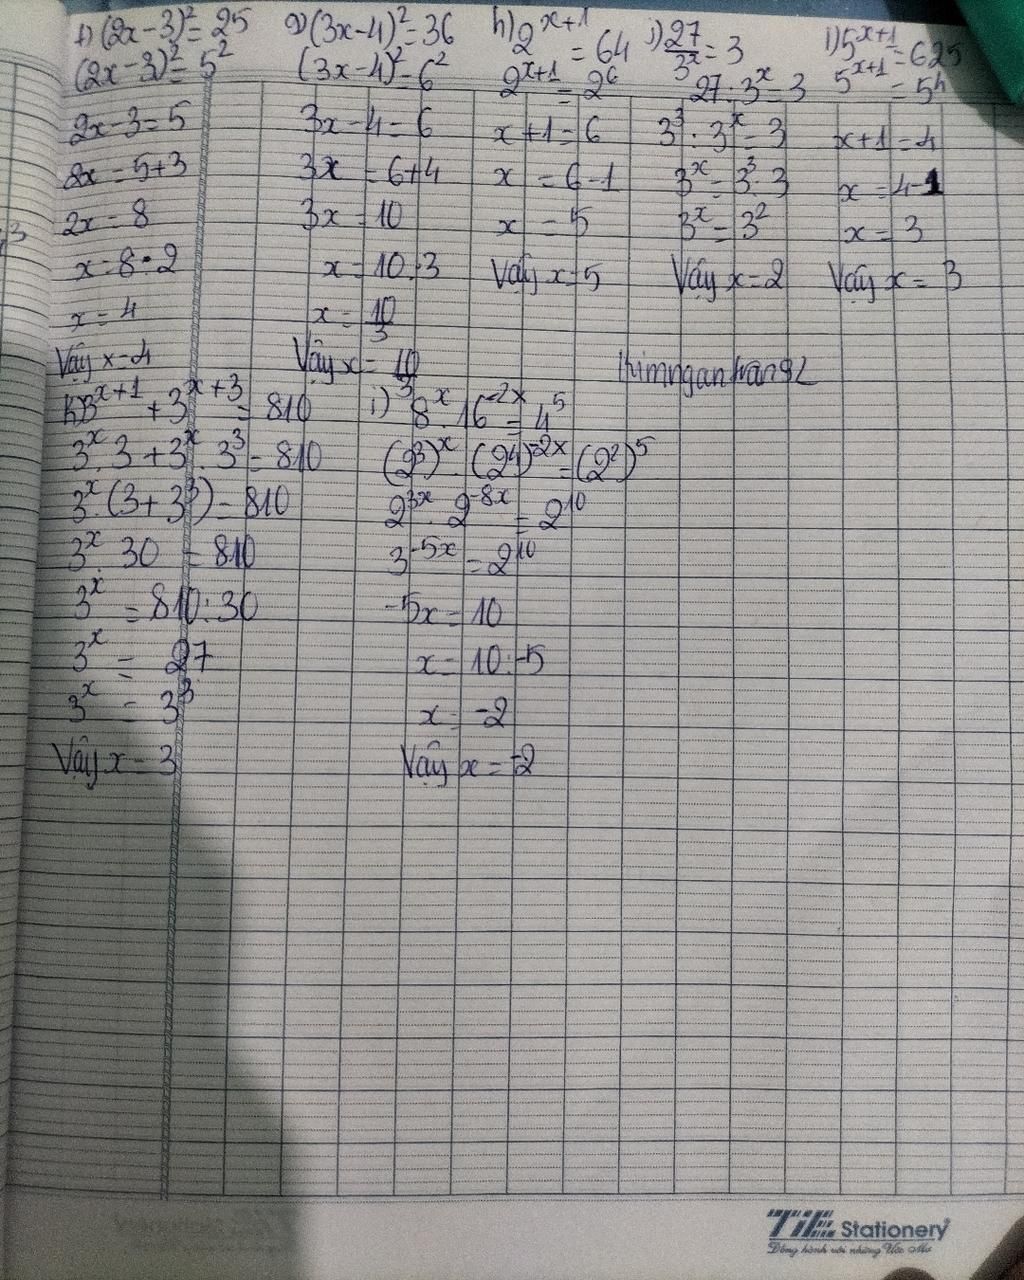 f) (2x-3)² = 25
(2x-3)² = 5²
2x-3=5
2x = 5+3
2x = 8
x = 8:2
x = 4
Vậy x = 4
g) (3x-4)² = 36
(3x-4)² = 6²
3x-4 = 6
3x = 6+4
3x = 10
x = 10:3
x = 10/3
Vậy x = 10/3
h) 2^{x+1} = 64
2^{x+1} = 2⁶
x+1 = 6
x = 6-1
x = 5
Vậy x = 5
i) 27/3^x = 3
27 : 3^x = 3
3³ : 3^x = 3
3^x = 3³:3
3^x = 3²
Vậy x = 2
i) 5^{x+1} = 625
5^{x+1} = 5⁴
x+1 = 4
x = 4-1
x = 3
Vậy x = 3
thimngantrang2
k) 3^{x+1} + 3^{x+3} = 810
3^x.3 + 3^x.3³ = 810
3^x.(3+3³) = 810
3^x.30 = 810
3^x = 810:30
3^x = 27
3^x = 3³
Vậy x = 3
i) 8^x.16^{-2x} = 4⁵
(2³)^x.(2⁴)^{-2x} = (2²)⁵
2^{3x}.2^{-8x} = 2^{10}
3^{-5x} = 2^{10}
-5x = 10
x = 10:-5
x = -2
Vậy x = -2
TiE Stationery
Đồng hành với những Ước Mơ